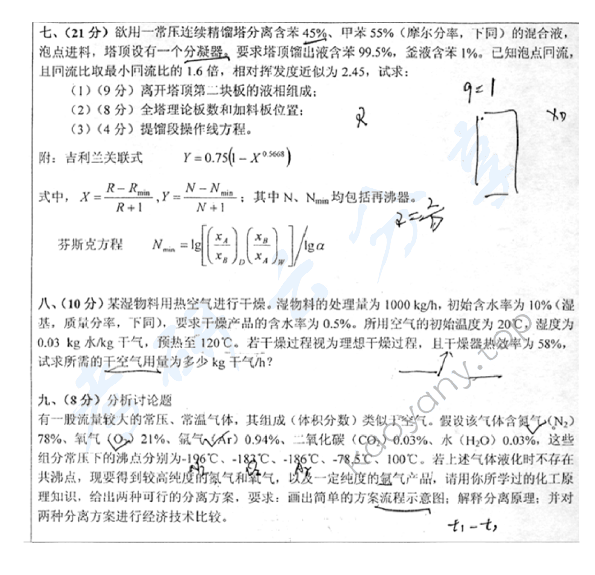 七、(21 分) 欲用一常压连续精馏塔分离含苯 45%、甲苯 55%（摩尔分率，下同）的混合液，
泡点进料，塔顶设有一个分凝器。要求塔顶馏出液含苯 99.5%，釜液含苯 1%。已知泡点回流，
且回流比取最小回流比的 1.6 倍，相对挥发度近似为 2.45，试求：
（1）（9 分）离开塔顶第二块板的液相组成；
（2）（8 分）全塔理论板数和加料板位置；
（3）（4 分）提馏段操作线方程。
q=1
R
XD
附：吉利兰关联式 Y = 0.75(1 − X^0.5668)
式中，X = (R − Rmin)/(R + 1)，Y = (N − Nmin)/(N + 1)；其中 N、Nmin 均包括再沸器。
芬斯克方程 Nmin = lg[(xA/xB)D (xB/xA)W] / lg α
八、(10 分) 某湿物料用热空气进行干燥。湿物料的处理量为 1000 kg/h，初始含水率为 10%（湿
基，质量分率，下同），要求干燥产品的含水率为 0.5%。所用空气的初始温度为 20℃，湿度为
0.03 kg 水/kg 干气，预热至 120℃。若干燥过程视为理想干燥过程，且干燥器热效率为 58%，
试求所需的干空气用量为多少 kg 干气/h？
九、(8 分) 分析讨论题
有一股流量较大的常压、常温气体，其组成（体积分数）类似于空气。假设该气体含氮气（N2）
78%、氧气（O2）21%、氩气（Ar）0.94%、二氧化碳（CO2）0.03%、水（H2O）0.03%，这些
组分常压下的沸点分别为-196℃、-183℃、-186℃、-78.5℃、100℃。若上述气体液化时不存在
共沸点，现要得到较高纯度的氮气和氧气，以及一定纯度的氩气产品，请用你所学过的化工原
理知识，给出两种可行的分离方案，要求：画出简单的方案流程示意图；解释分离原理；并对
两种分离方案进行经济技术比较。
N2 O2 Ar
kaoyany.top